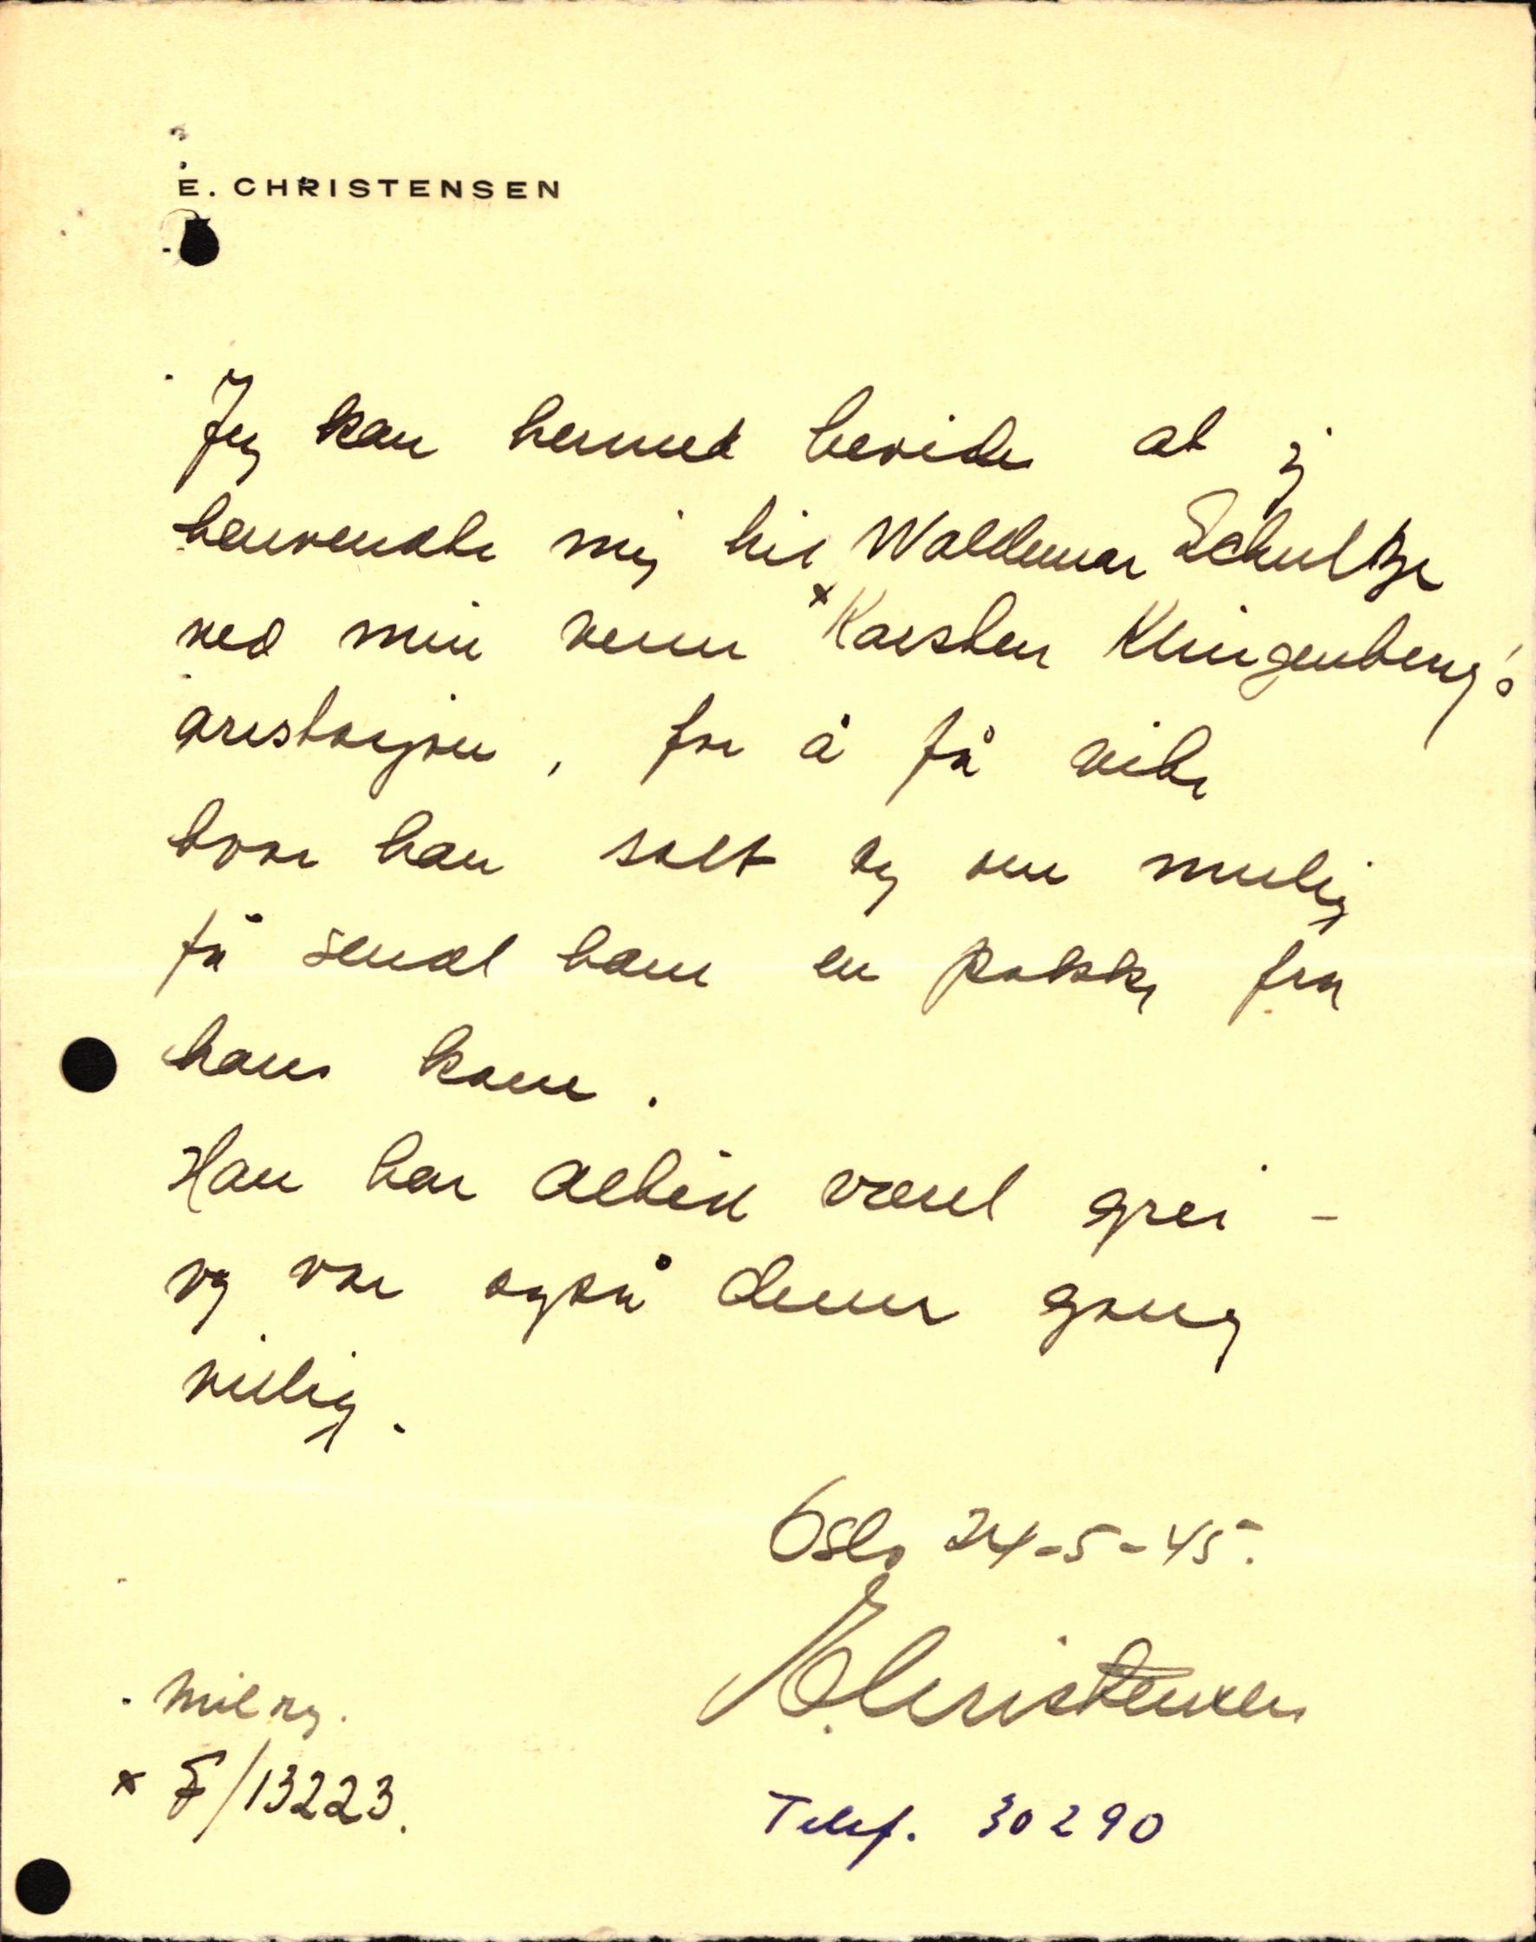 E. CHRISTENSEN
Jeg kan hermed bevidne at jeg
henvendte mig til Waldemar Schultze
ved min venn ×Karsten Klingenberg's
arrestasjon, for å få vite
hvor han satt og om mulig
få sendt ham en pakke fra
hans kone.
Han har altid vært grei -
og var også denne gang
villig.
Oslo 24-5-45.
E. Christensen
Telef. 30290
Mil org.
× F/13223.